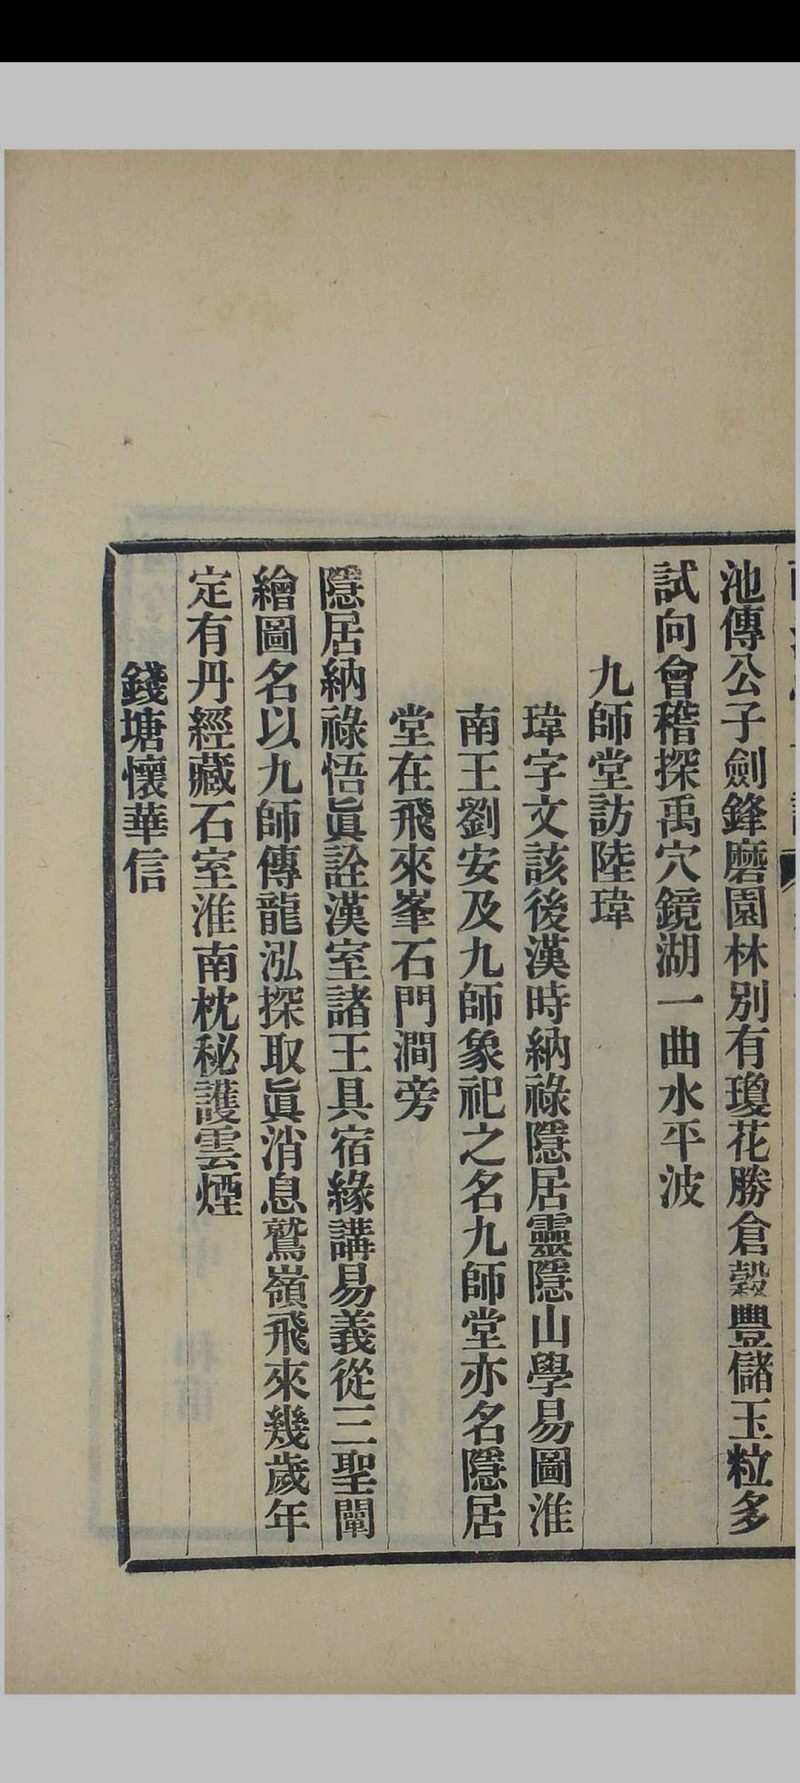 池傳公子劍鋒磨園林別有瓊花勝倉穀豐儲玉粒多
試向會稽探禹穴鏡湖一曲水平波
九師堂訪陸瑋
瑋字文該後漢時納祿隱居靈隱山學易圖淮
南王劉安及九師象祀之名九師堂亦名隱居
堂在飛來峯石門澗旁
隱居納祿悟眞詮漢室諸王具宿緣講易義從三聖闡
繪圖名以九師傳龍泓探取眞消息鷲嶺飛來幾歲年
定有丹經藏石室淮南枕秘護雲煙
錢塘懷華信